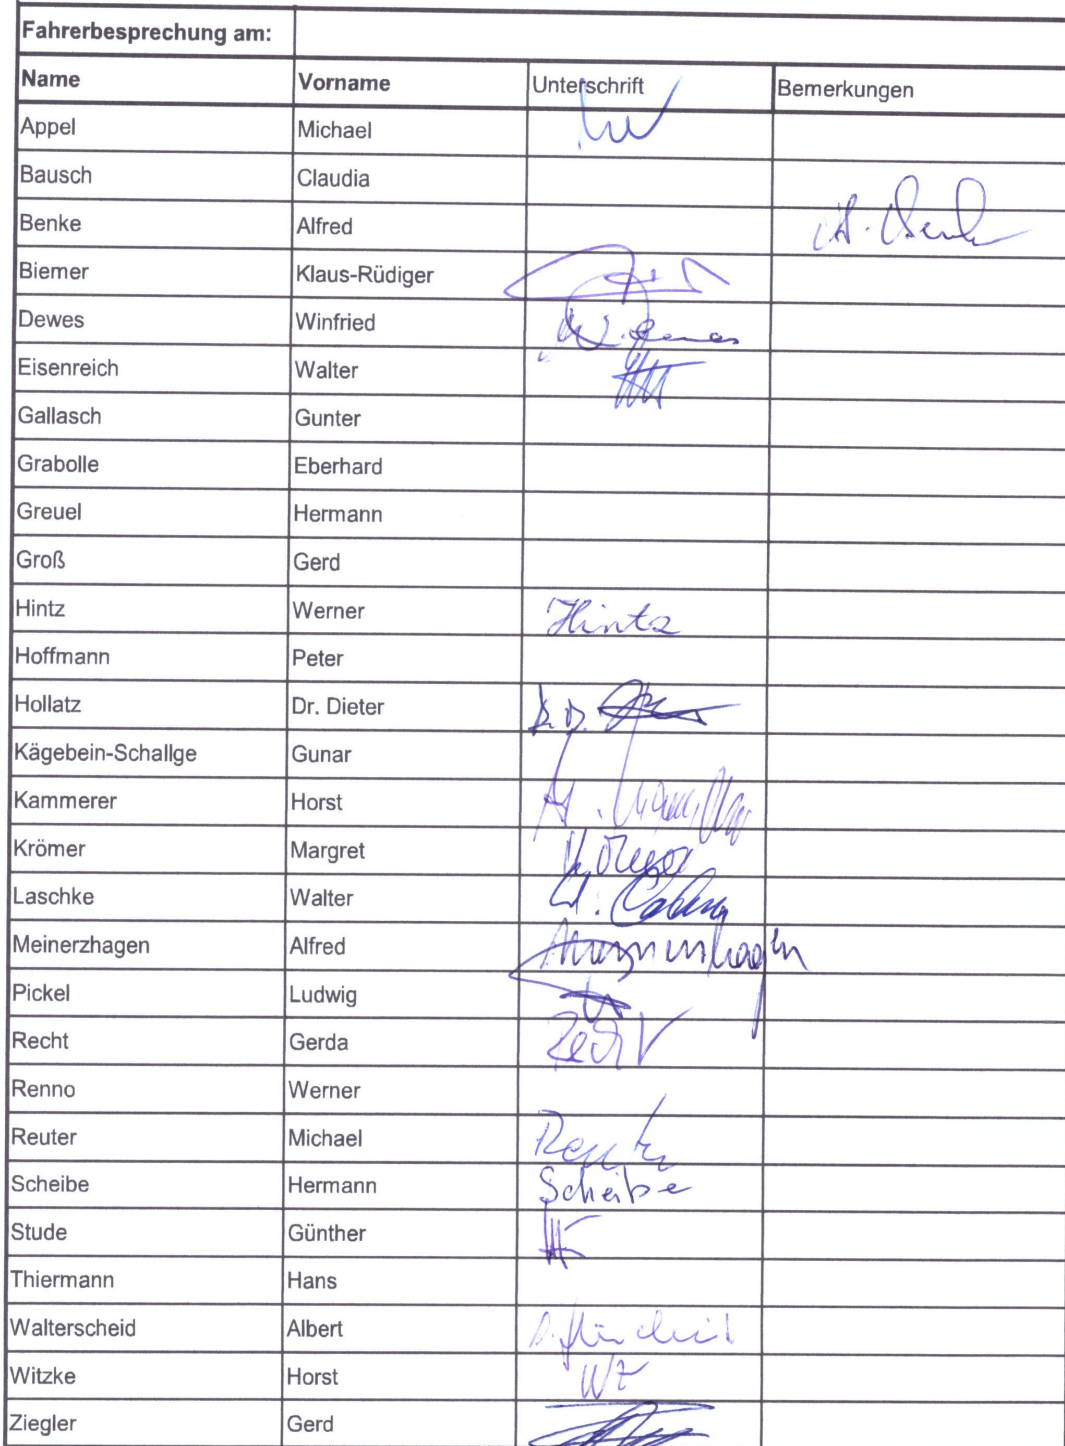 Fahrerbesprechung am:
Name Vorname Unterschrift Bemerkungen
Appel Michael
Bausch Claudia
Benke Alfred
Biemer Klaus-Rüdiger
Dewes Winfried
Eisenreich Walter
Gallasch Gunter
Grabolle Eberhard
Greuel Hermann
Groß Gerd
Hintz Werner Hintz
Hoffmann Peter
Hollatz Dr. Dieter
Kägebein-Schallge Gunar
Kammerer Horst
Krömer Margret
Laschke Walter
Meinerzhagen Alfred
Pickel Ludwig
Recht Gerda Recht
Renno Werner
Reuter Michael Reuter
Scheibe Hermann Scheibe
Stude Günther
Thiermann Hans
Walterscheid Albert
Witzke Horst Wz
Ziegler Gerd